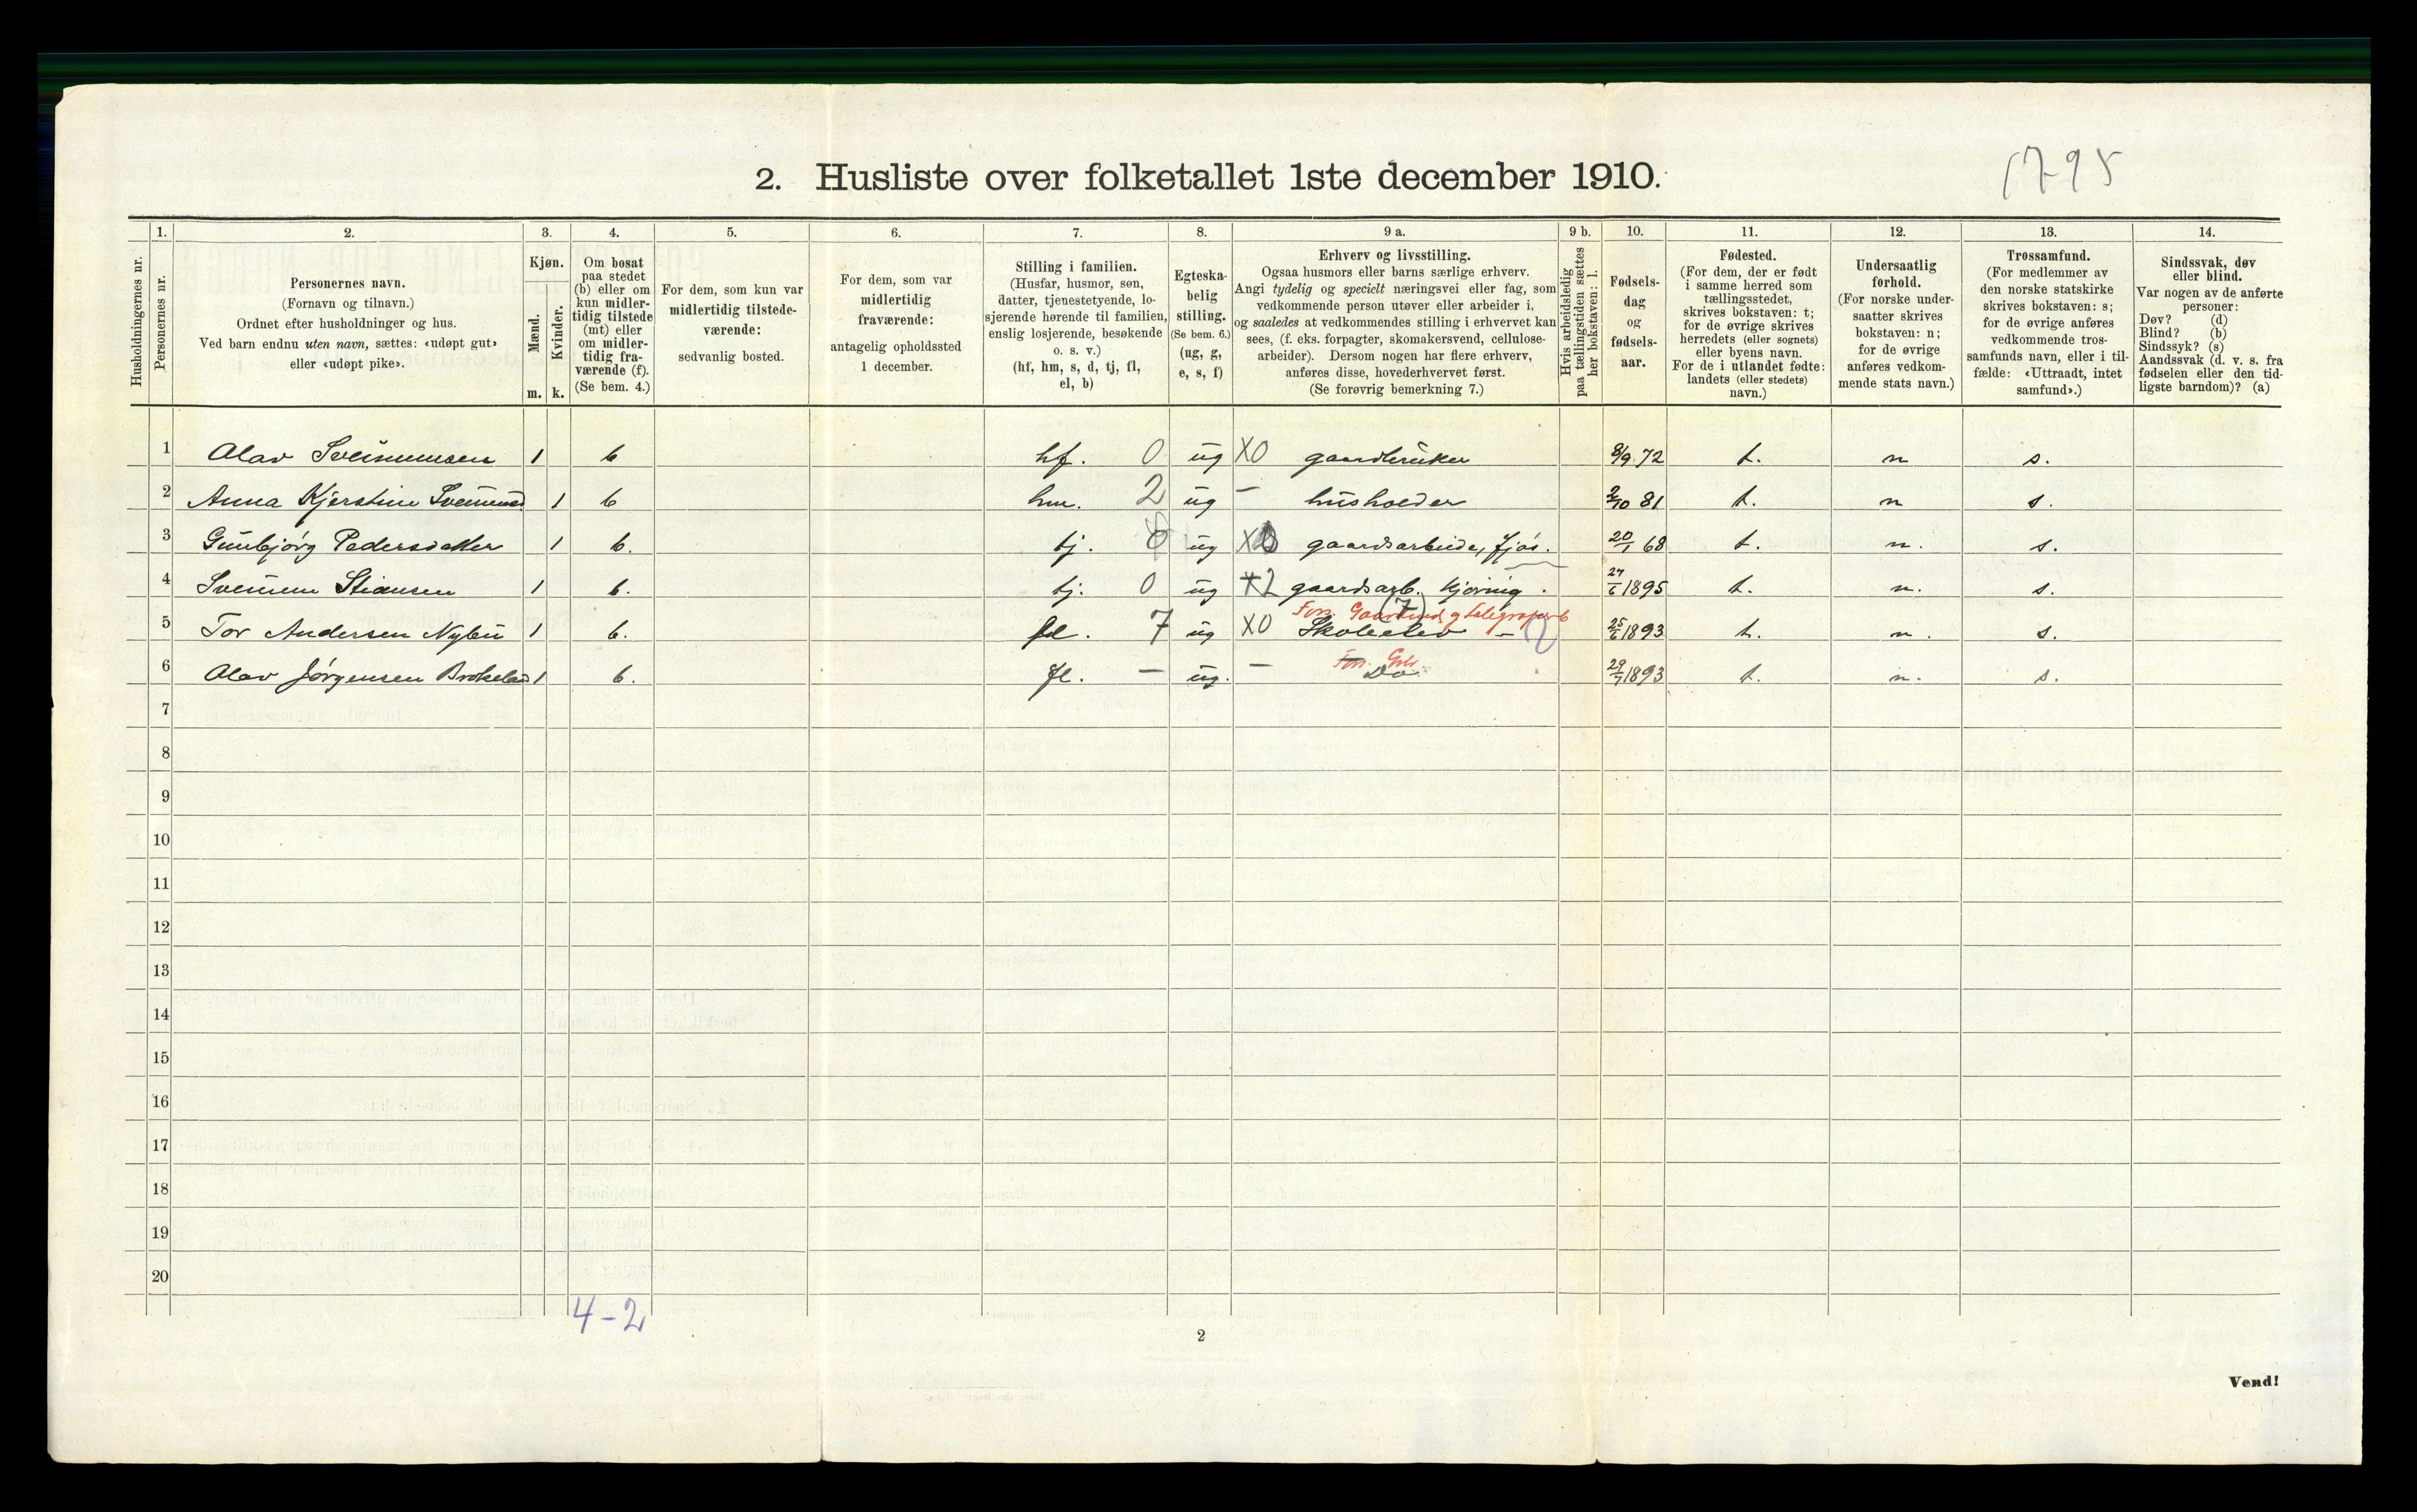 2. Husliste over folketallet 1ste december 1910.
1795
Husholdningernes nr.
1.
Personernes nr.
2.
Personernes navn.
(Fornavn og tilnavn.)
Ordnet efter husholdninger og hus.
Ved barn endnu uten navn, sættes: «udøpt gut»
eller «udøpt pike».
3.
Kjøn.
Mænd.
Kvinder.
m. k.
4.
Om bosat
paa stedet
(b) eller om
kun midler-
tidig tilstede
(mt) eller
om midler-
tidig fra-
værende (f).
(Se bem. 4.)
5.
For dem, som kun var
midlertidig tilstede-
værende:
sedvanlig bosted.
6.
For dem, som var
midlertidig
fraværende:
antagelig opholdssted
1 december.
7.
Stilling i familien.
(Husfar, husmor, søn,
datter, tjenestetyende, lo-
sjerende hørende til familien,
enslig losjerende, besøkende
o. s. v.)
(hf, hm, s, d, tj, fl,
el, b)
8.
Egteska-
belig
stilling.
(Se bem. 6.)
(ug, g,
e, s, f)
9 a.
Erhverv og livsstilling.
Ogsaa husmors eller barns særlige erhverv.
Angi tydelig og specielt næringsvei eller fag, som
vedkommende person utøver eller arbeider i,
og saaledes at vedkommendes stilling i erhvervet kan
sees, (f. eks. forpagter, skomakersvend, cellulose-
arbeider). Dersom nogen har flere erhverv,
anføres disse, hovederhvervet først.
(Se forøvrig bemerkning 7.)
9 b.
Hvis arbeidsledig
paa tællingstiden sættes
her bokstaven: l.
10.
Fødsels-
dag
og
fødsels-
aar.
11.
Fødested.
(For dem, der er født
i samme herred som
tællingsstedet,
skrives bokstaven: t;
for de øvrige skrives
herredets (eller sognets)
eller byens navn.
For de i utlandet fødte:
landets (eller stedets)
navn.)
12.
Undersaatlig
forhold.
(For norske under-
saatter skrives
bokstaven: n;
for de øvrige
anføres vedkom-
mende stats navn.)
13.
Trossamfund.
(For medlemmer av
den norske statskirke
skrives bokstaven: s;
for de øvrige anføres
vedkommende tros-
samfunds navn, eller i til-
fælde: «Uttraadt, intet
samfund».)
14.
Sindssvak, døv
eller blind.
Var nogen av de anførte
personer:
Døv? (d)
Blind? (b)
Sindssyk? (s)
Aandssvak (d. v. s. fra
fødselen eller den tid-
ligste barndom)? (a)
1 Olav Sveinumsen 1 b hf. 0 ug X0 gaardbruker 8/9 72 t. n s.
2 Anna Kjerstine 1 b hm. 2 ug - husholder 2/10 81 t. n s.
3 Gunbjørg Pedersdatter 1 b. tj. 0 ug gaardsarbeide, fjøs. 20/1 68 t. n. s.
4 Sveinum Stiansen 1 b. tj. 0 ug X2 gaardsarb. kjøring. 1895 t. n. s.
Fors. Gaardbrud og telegrafarb
5 Tor Andersen Nybu 1 b. fl. 7 ug X0 Skoleelev - 25/6 1893 t. n. s.
Fors. Gbr
6 Olav Jørgensen 1 b. fl. - ug. - Do 29/7 1893 t. n. s.
7
8
9
10
11
12
13
14
15
16
17
18
19
20
4-2
2
Vend!